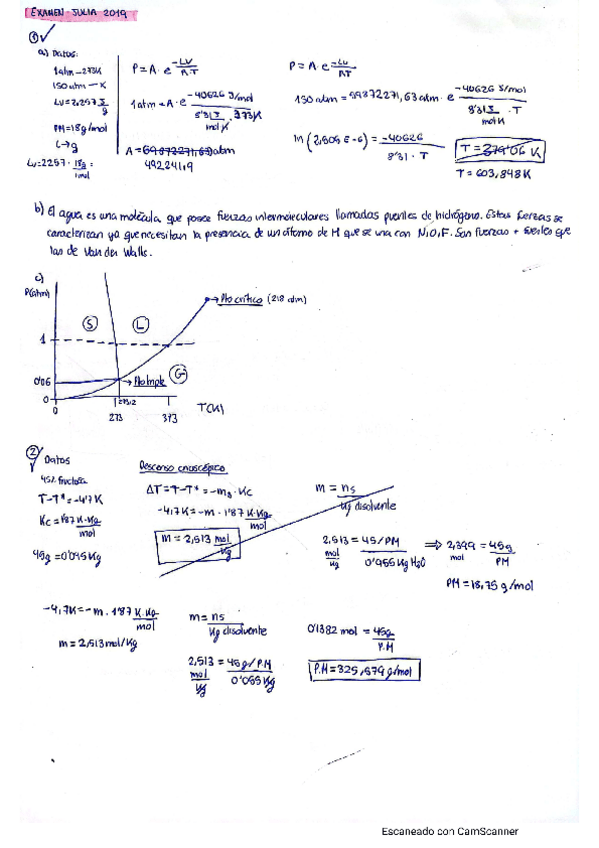 EXAMEN JULIA 2019
①
a) Datos:
1atm - 273K
150 atm - K
Lv = 2,257 J/g
PM = 18 g/mol
↳ g
Lv = 2257 · 18g/1mol =
P = A · e^(-LV/R·T)
1atm = A · e^(-40626 J/mol / 8'31 J/mol K · 373K)
A =
4922411,9
P = A · e^(-Lv/RT)
150 atm = 59872271,63 atm · e^(-40626 J/mol / 8'31 J/mol K · T)
ln (2,505 E-6) = -40626 / 8'31 · T
T = 379'06 K
T = 603,848 K
b) El agua es una molécula que posee fuerzas intermoleculares llamadas puentes de hidrógeno. Estas fuerzas se
caracterizan ya que necesitan la presencia de un átomo de H que se una con N, O, F. Son fuerzas + fuertes que
las de Van der Walls.
c)
P(atm)
→ Pto crítico (218 atm)
S L
1
0'06 → Pto triple G
0
0 273'2 T(K)
273 373
②
Datos
45% fructosa
T-T* = -4'7 K
Kc = 1'87 K·Kg/mol
45g = 0'045 Kg
Descenso crioscópico
ΔT = T-T* = -ms · Kc
-4,7K = -m · 1'87 K·Kg/mol
m = 2,513 mol/Kg
m = ns / Kg disolvente
2,513 mol/Kg = 45/PM / 0'955 Kg H2O ⇒ 2,399 mol = 45g/PM
PM = 18,75 g/mol
-4,7K = -m · 1'87 K·Kg/mol
m = 2,513 mol/Kg
m = ns / Kg disolvente
2,513 mol/Kg = 45g/P.M / 0'055 Kg
0'1382 mol = 45g/P.M
P.M = 325,579 g/mol
Escaneado con CamScanner